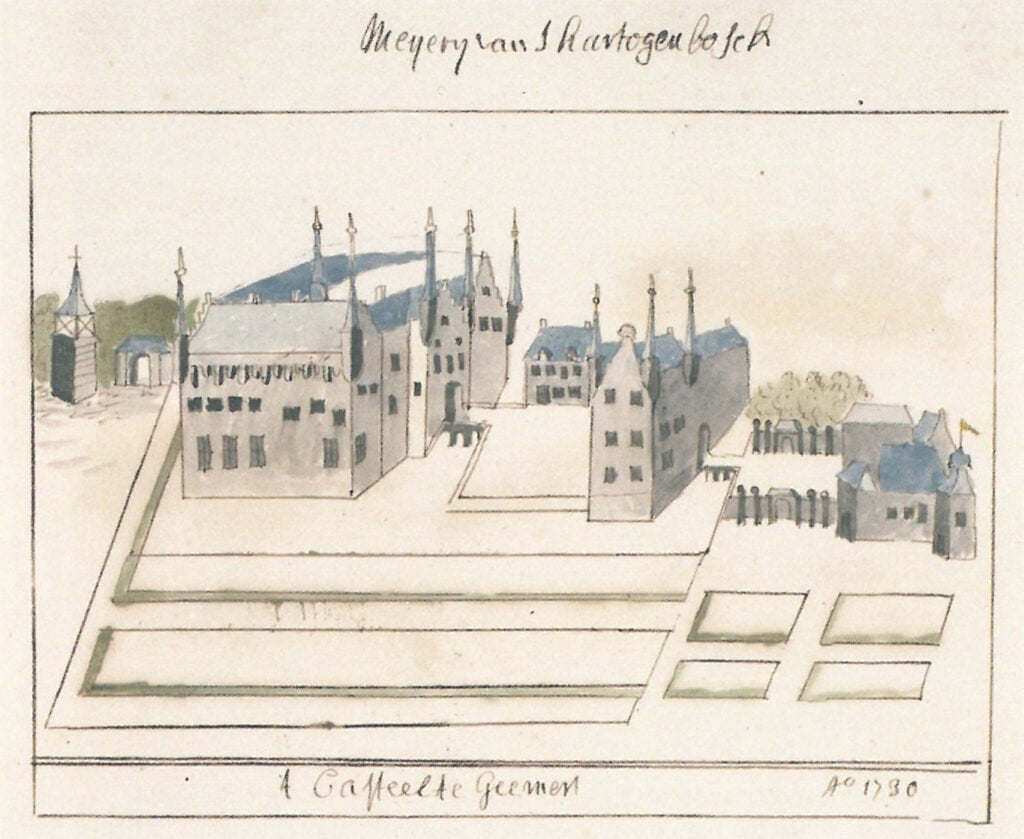 Meyery van S Hartogenbosch
't Casteel te Geemert
Aº 1730